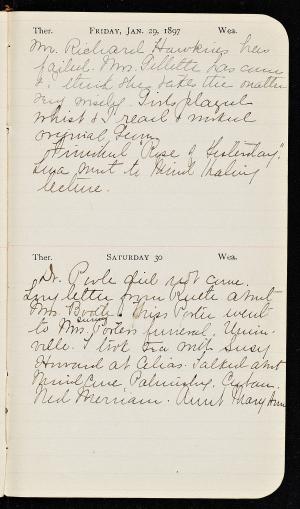 Ther. FRIDAY, JAN. 29, 1897 Wea.
Mr. Richard Hawkins has
failed. Mrs. Gillette has come
& I think she takes the matter
very nicely. Girls played
whist & I read &
Finished "Rose of Yesterday."
went to Mind Healing
lecture.
Ther. SATURDAY 30 Wea.
Dr. Poole did not come.
Long letter from about
Mrs. Booth. Miss Porter went
to Mrs. Porter's funeral.
ville. I took tea with Susy
Howard at Alias. Talked about
Mind Cure, Palmistry, Cuban.
Ned Merriam. Aunt Mary Ann